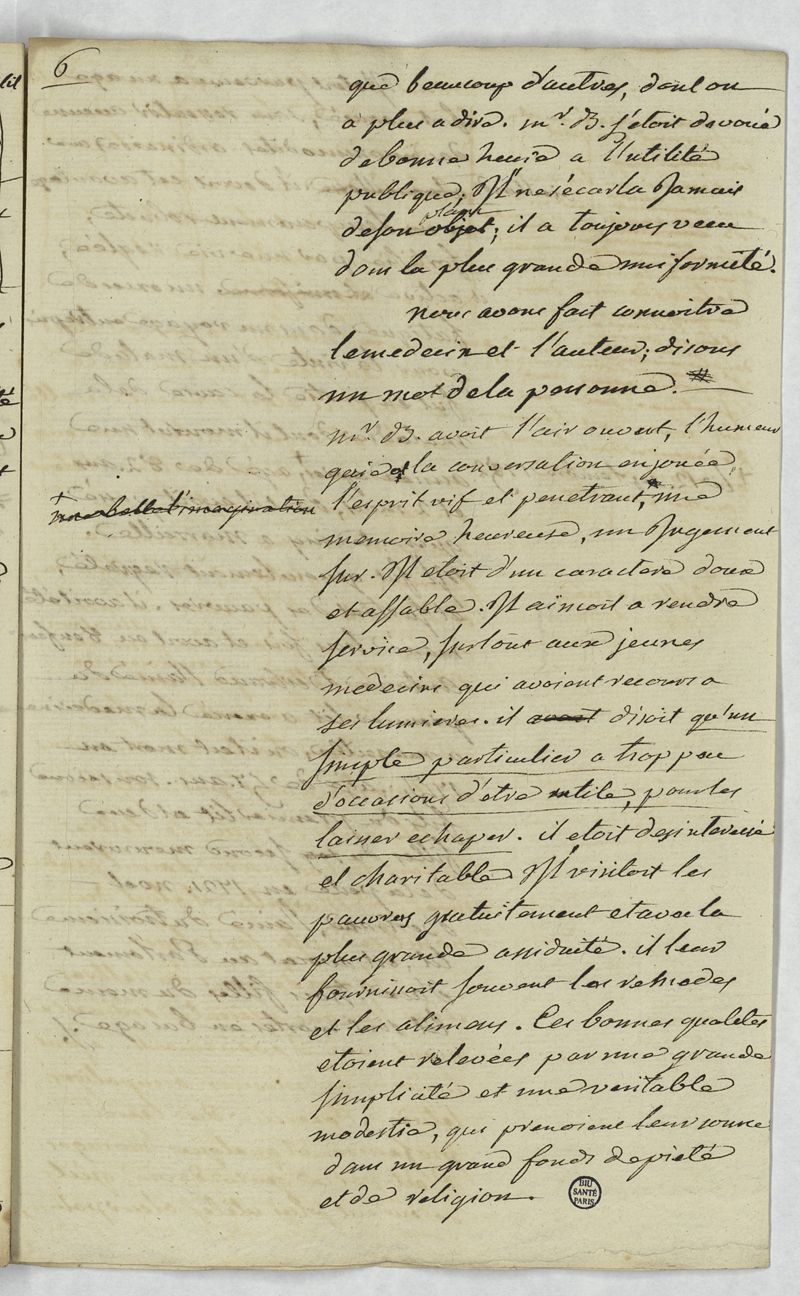 6
que beaucoup d'autres, dont on
a plus a dire. mr. B. s'étoit devoué
de bonne heure a l'utilité
publique. Il ne s'écarta Jamais
plan
de son objet; il a toujours vecu
dans la plus grande uniformité.
nous avons fait connoitre
le medecin et l'auteur; disons
un mot de la personne. #
mr. B. avoit l'air ouvert, l'humeur
gaie et la conversation enjouée,
l'esprit vif et penetrant, une
+
une belle l'imagination
memoire heureuse, un Jugement
sur. Il etoit d'un caractere doux
et affable. Il aimoit a rendre
service, surtout aux jeunes
medecins qui avoient recours a
ses lumieres. il avoit disoit qu'un
simple particulier a trop peu
d'occasions d'etre utile, pour les
laisser echaper. il etoit desinteressé
et charitable. Il visitoit les
pauvres gratuitement et avec la
plus grande assiduité. il leur
fournissoit souvent les remedes
et les alimens. Ces bonnes qualités
etoient relevées par une grande
simplicité et une veritable
modestie, qui prenoient leur source
dans un grand fonds de pieté
et de religion.
BIU
SANTÉ
PARIS